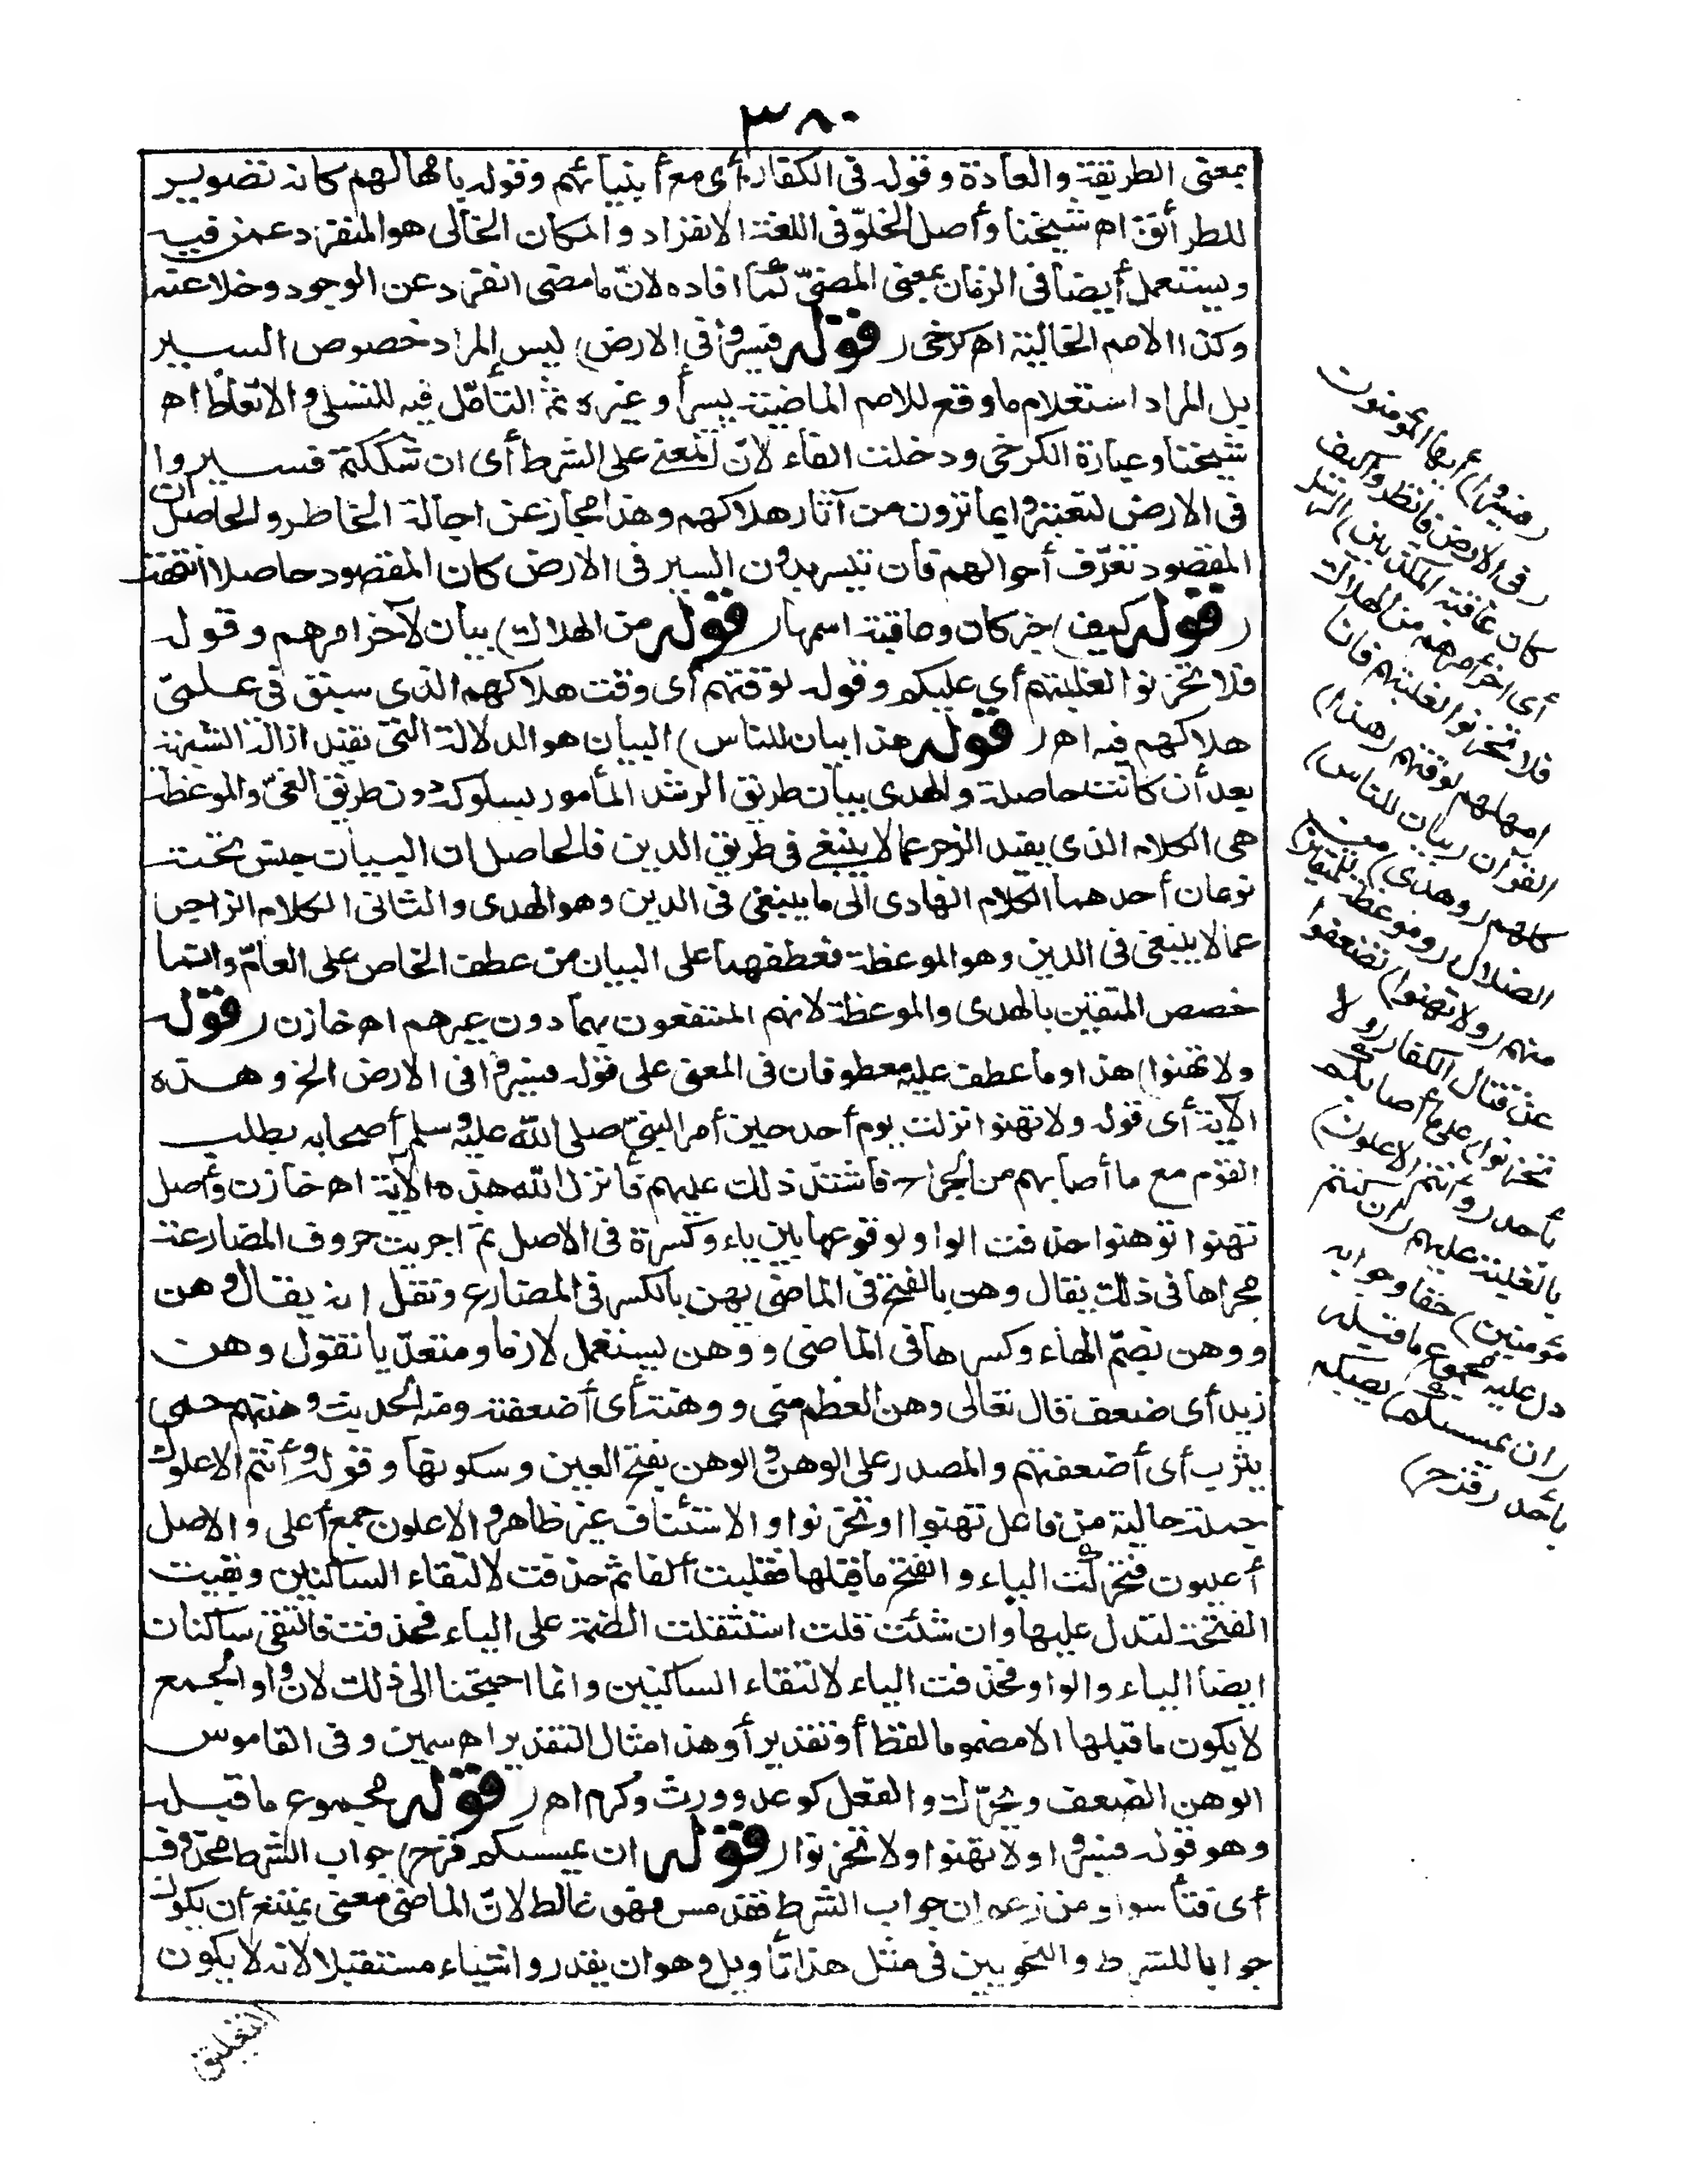 ٣٨٠
بمعنى الطريقة والعادة وقوله فى الكفار أى مع أنبيائهم وقوله بامهالهم كانه تصوير
للطرائق اه شيخنا وأصل الخلوّ فى اللغة الانفراد والمكان الخالى هو المنفرد عمن فيه
ويستعمل أيضا فى الزمان بمعنى المضىّ كما افاده لانّ ما مضى انفرد عن الوجود وخلا عنه
وكذا الامم الخالية اه كرخى (قوله فسيروا فى الارض) ليس المراد خصوص السير
بل المراد استعلام ما وقع للامم الماضية بسير أو غيره ثمّ التأمّل فيه للتسلى والاتعاظ اه
شيخنا وعبارة الكرخى ودخلت الفاء لانّ المعنى على الشرط أى ان شككتم فسيروا
فى الارض لتعتبروا بما ترون من آثار هلاكهم وهذا مجاز عن اجالة الخاطر والحاصل ان
المقصود تعرّف أحوالهم فان تيسر بدون السير فى الارض كان المقصود حاصلا انتهت
(قوله كيف) خبر كان وعاقبة اسمها (قوله من الهلاك) بيان لآخر امرهم وقوله
فلا تحزنوا لغلبتهم أي عليكم وقوله لوقتهم أى وقت هلاكهم الذى سبق فى علمى
هلاكهم فيه اه (قوله هذا بيان للناس) البيان هو الدلالة التى تفيد ازالة الشبهة
بعد أن كانت حاصلة والهدى بيان طريق الرشد المأمور بسلوكه دون طريق الغىّ والموعظة
هى الكلام الذى يفيد الزجر عما لا ينبغى فى طريق الدين فالحاصل ان البيان جنس تحته
نوعان أحدهما الكلام الهادى الى ما ينبغى فى الدين وهو الهدى والثانى الكلام الزاجر
عما لا ينبغى فى الدين وهو الموعظة فعطفهما على البيان من عطف الخاص على العامّ وانما
خصص المتقين بالهدى والموعظة لانهم المنتفعون بهما دون غيرهم اه خازن (قوله
ولا تهنوا) هذا وما عطف عليه معطوفان فى المعنى على قوله فسيروا فى الارض الخ وهذه
الآية أى قوله ولا تهنوا نزلت يوم أحد حين أمر النبىّ صلى الله عليه وسلم أصحابه بطلب
القوم مع ما أصابهم من الجراح فاشتدّ ذلك عليهم فأنزل الله هذه الآية اه خازن وأصل
تهنوا توهنوا حذفت الواو لوقوعها بين ياء وكسرة فى الاصل ثمّ اجريت حروف المضارعة
مجراها فى ذلك يقال وهن بالفتح فى الماضى يهن بالكسر فى المضارع ونقل انه يقال وهن
ووهن بضمّ الهاء وكسرها فى الماضى ووهن يستعمل لازما ومتعدّيا تقول وهن
زيد أى ضعف قال تعالى وهن العظم منى ووهنته أى أضعفته ومنه الحديث وهنتهم حمى
يثرب أى أضعفتهم والمصدر على الوهن والوهن بفتح العين وسكونها وقوله وأنتم الاعلون
جملة حالية من فاعل تهنوا اوتحزنوا والاستئناف غير ظاهر والاعلون جمع أعلى والاصل
أعليون فتحرّكت الياء وانفتح ما قبلها فقلبت ألفا ثم حذفت لالتقاء الساكنين وبقيت
الفتحة لتدل عليها وان شئت قلت استثقلت الضمة على الياء فحذفت فالتقى ساكنان
ايضا الياء والواو فحذفت الياء لالتقاء الساكنين وانما احتجنا الى ذلك لان واو الجمع
لا يكون ما قبلها الا مضموما لفظا أو تقديرا وهذا مثال التقدير اه سمين وفى القاموس
الوهن الضعف ويحرّك والفعل كوعد وورث وكرم اه (قوله مجموع ما قبله
وهو قوله فسيروا ولا تهنوا ولا تحزنوا (قوله ان يمسسكم قرح) جواب الشرط محذوف
أى فتأسوا ومن زعم ان جواب الشرط فقد مس فهو غالط لانّ الماضى معنى يمتنع أن يكون
جوابا للشرط والنحويين فى مثل هذا تأويل وهو ان يقدروا شياء مستقبلا لانه لا يكون
(فسيروا) أيها المؤمنون
(فى الارض فانظروا كيف
كان عاقبة المكذبين) الرسل
أى اخر أمرهم من الهلاك
فلا تحزنوا لغلبتهم فانا
امهلهم لوقتهم (هذا)
القرآن (بيان للناس)
كلهم (وهدى) من
الضلال (وموعظة للمتقين)
منهم (ولا تهنوا) تضعفوا
عن قتال الكفار (ولا
تحزنوا) على ما أصابكم
بأحد (وأنتم الاعلون)
بالغلبة عليهم (ان كنتم
مؤمنين) حقا وجوابه
دل عليه مجموع ما قبله
(ان يمسسكم) يصبكم
بأحد (قرح)